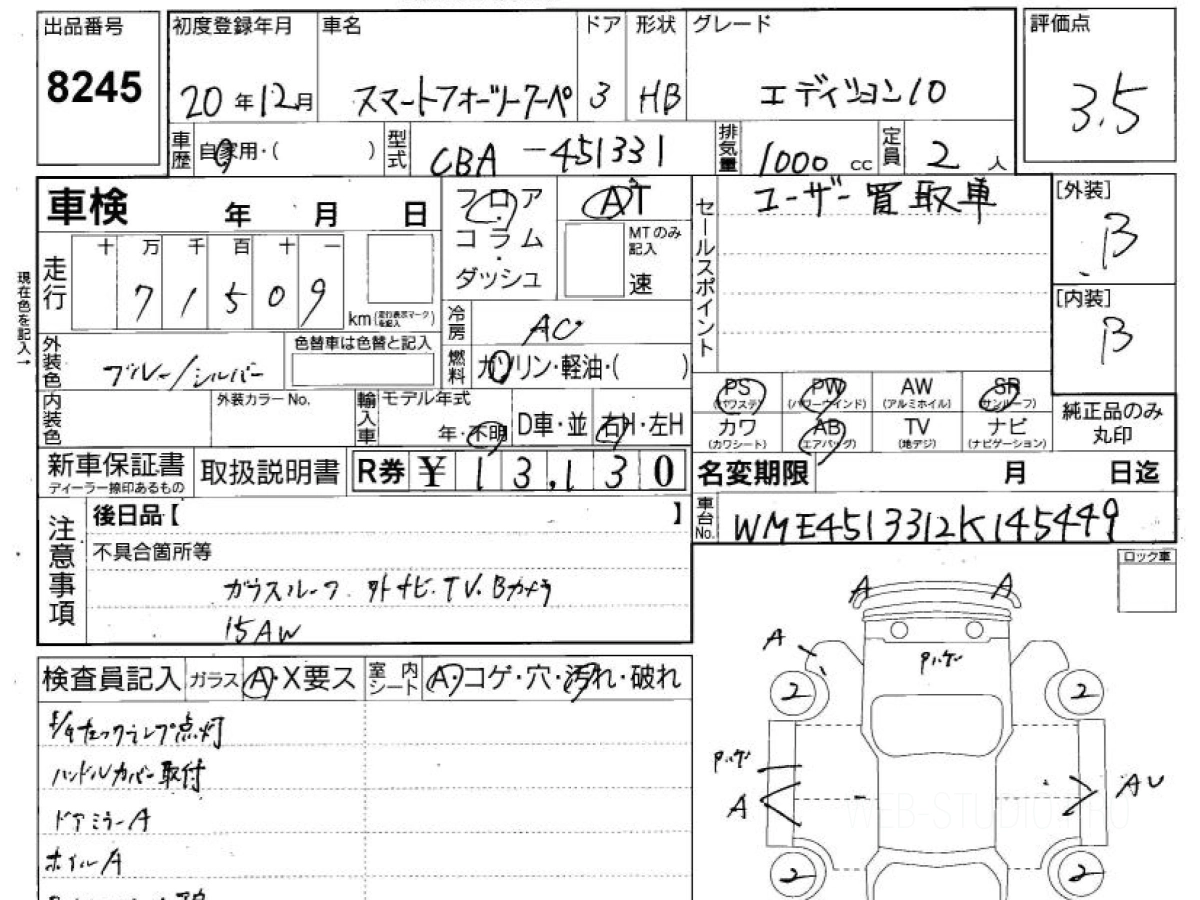 出品番号
8245
初度登録年月
20年12月
車名
スマートフォーツークーペ
ドア
3
形状
HB
グレード
エディション10
評価点
3.5
車歴
自家用・( )
型式
CBA -451331
排気量
1000 cc
定員
2 人
車検 年 月 日
フロア・コラム・ダッシュ
AT
MTのみ記入
速
セールスポイント
ユーザー買取車
[外装]
B
[内装]
B
現在色を記入→
走行
十 万 千 百 十 一
7 1 5 0 9
km(走行表示マークを記入)
冷房
AC
燃料
ガソリン・軽油・( )
外装色
ブルー/シルバー
色替車は色替と記入
内装色
外装カラーNo.
輸入車
モデル年式
年・不明
D車・並
右H・左H
PS (パワステ)
PW (パワーウインド)
AW (アルミホイル)
SR (サンルーフ)
カワ (カワシート)
AB (エアバッグ)
TV (地デジ)
ナビ (ナビゲーション)
純正品のみ丸印
新車保証書
ディーラー捺印あるもの
取扱説明書
R券 ¥13,130
名変期限 月 日迄
車台No.
WME4513312K145449
注意事項
後日品【 】
不具合箇所等
ガラスルーフ 外ナビ.TV.Bカメラ
15AW
ロック車
検査員記入
ガラス A・X要ス
室内シート A・コゲ・穴・汚れ・破れ
チェックランプ点灯
ハンドルカバー取付
ドアミラーA
ホイルA
A A
A
2 2
A
AU
2 2
WEB-STUDIO.RU